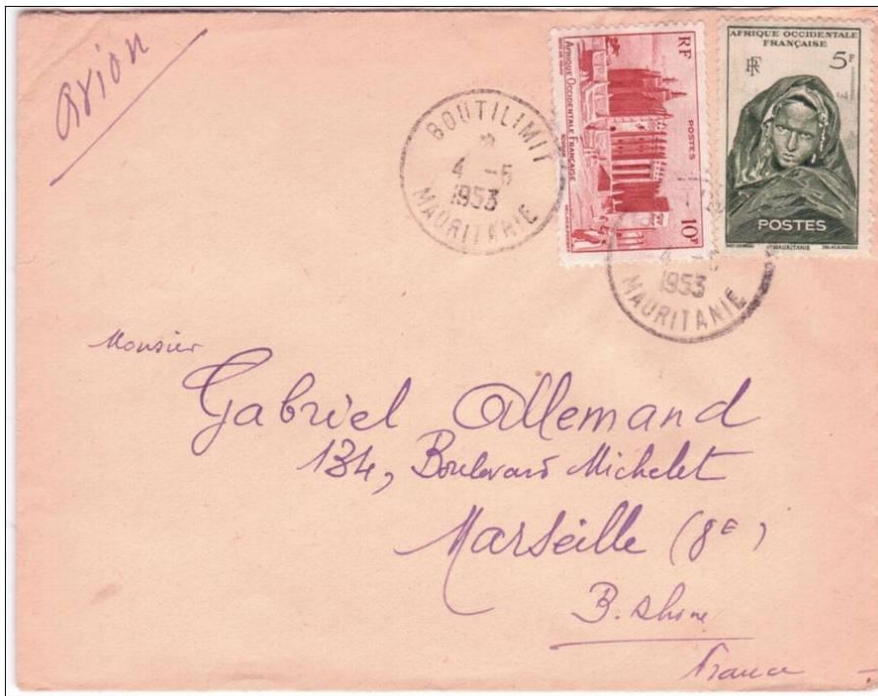 Avion
BOUTILIMIT
4 -6
1953
MAURITANIE
RF
POSTES
AFRIQUE OCCIDENTALE FRANÇAISE
10F
AFRIQUE OCCIDENTALE
FRANÇAISE
RF
5F
POSTES
MAURITANIE
1953
MAURITANIE
Monsieur
Gabriel Allemand
134, Boulevard Michelet
Marseille (8E)
B. Rhône
France